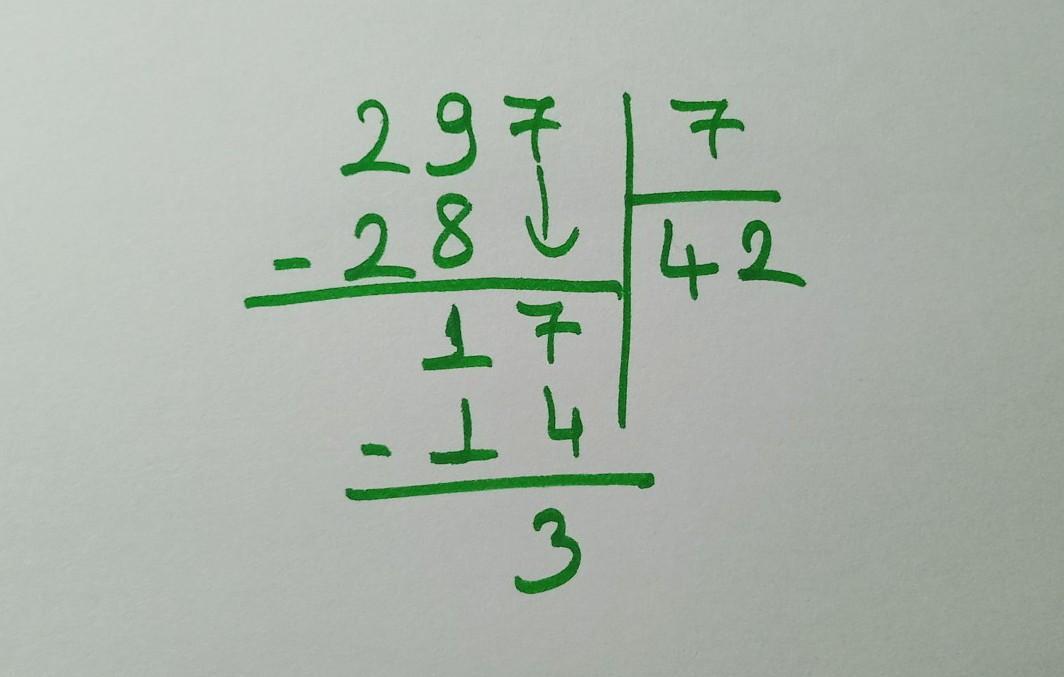 297 7
- 28 42
17
- 14
3